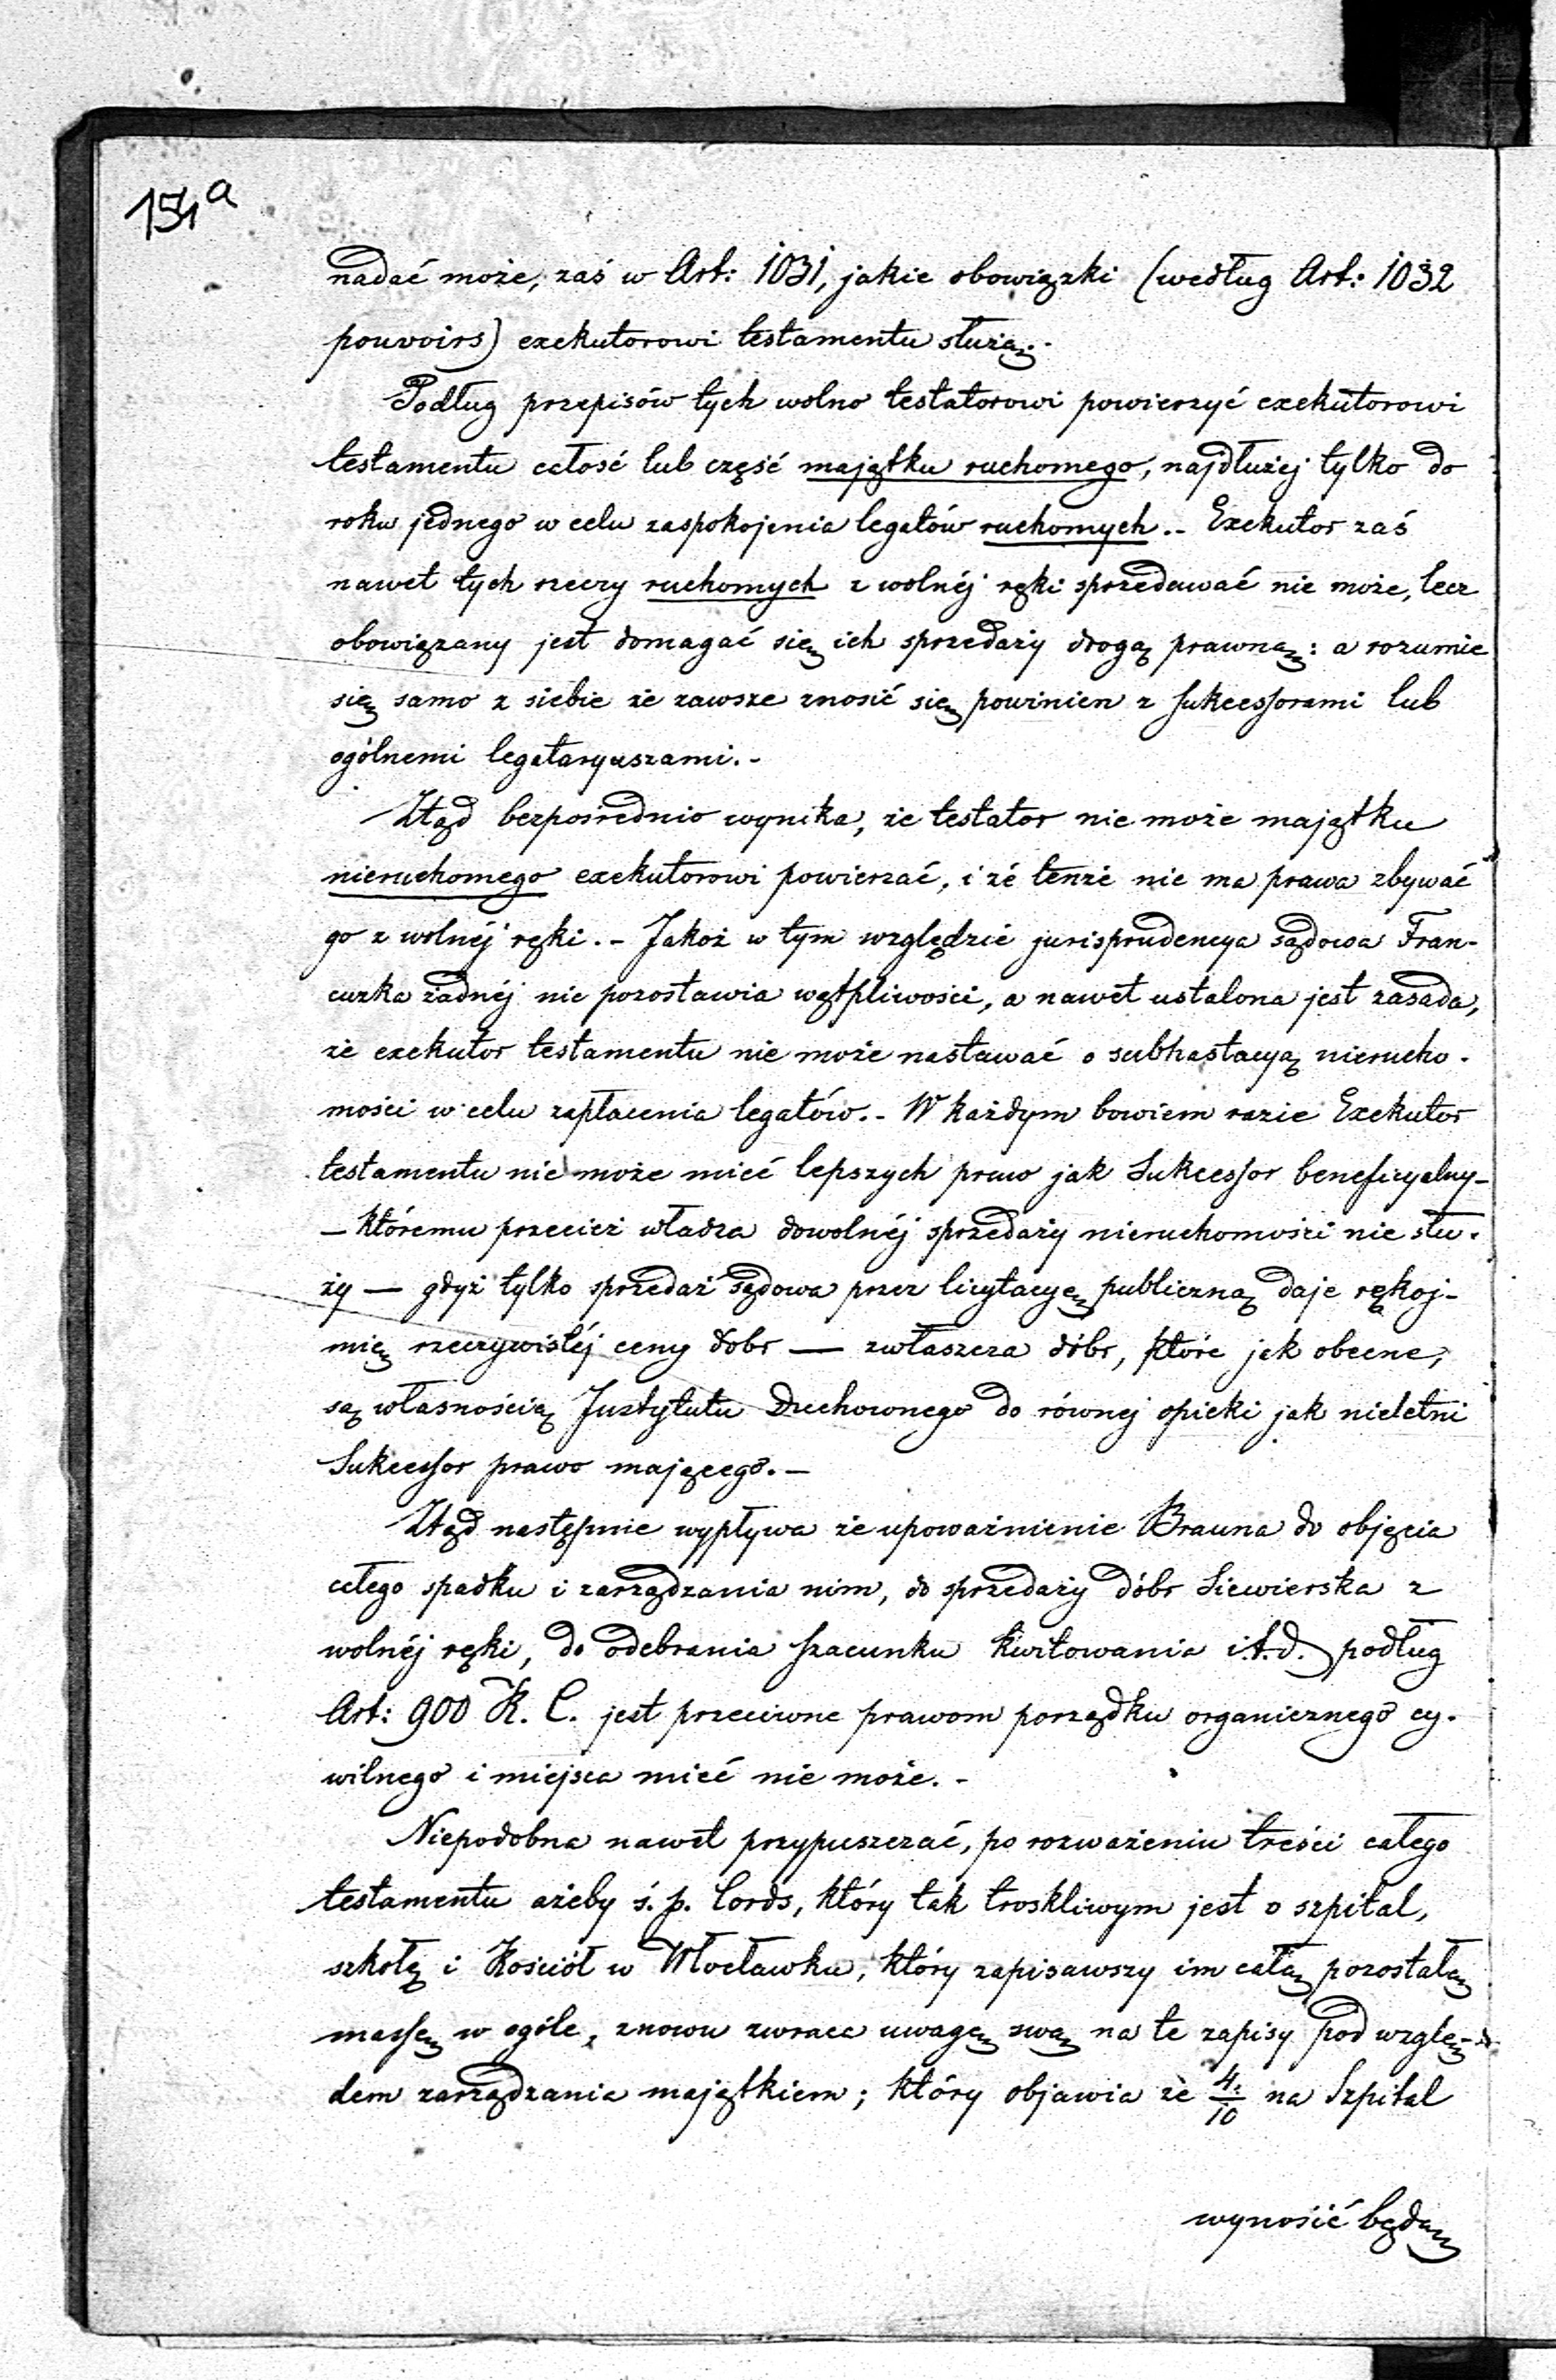 151a
nadać może, zaś w Art: 1031, jakie obowiązki (według Art: 1032
pouvoirs) exekutorowi testamentu służą.-
Podług przepisów tych wolno testatorowi powierzyć exekutorowi
testamentu całość lub część majątku ruchomego, najdłużej tylko do
roku jednego w celu zaspokojenia legatów ruchomych.- Exekutor zaś
nawet tych rzeczy ruchomych z wolnéj ręki sprzedawać nie może, lecz
obowiązany jest domagać się ich sprzedaży drogą prawną: a rozumie
się samo z siebie że zawsze znosić się powinien z sukcessorami lub
ogólnemi legataryuszami.-
Ztąd bezpośrednio wynika, że testator nie może majątku
nieruchomego exekutorowi powierzać, i że tenże nie ma prawa zbywać
go z wolnéj ręki.- Jakoż w tym względzie jurisprudencya sądowa Fran-
cuzka żadnéj nie pozostawia wątpliwości, a nawet ustalona jest zasada,
że exekutor testamentu nie może nastawać o subhastacyą nierucho-
mości w celu zapłacenia legatów.- W każdym bowiem razie Exekutor
testamentu nie może mieć lepszych praw jak Sukcessor beneficyalny-
- któremu przecież władza dowolnéj sprzedaży nieruchomości nie słu-
ży — gdyż tylko sprzedaż sądowa przez licytacyę publiczną daje rękoj-
mię rzeczywistéj ceny dobr — zwłaszcza dóbr, które jak obecne,
są własnością Instytutu Duchownego do równej opieki jak nieletni
Sukcessor prawo mającego.-
Ztąd następnie wypływa że upoważnienie Brauna do objęcia
całego spadku i zarządzania nim, do sprzedaży dóbr Siewierska z
wolnéj ręki, do odebrania szacunku kwitowania i.t.d. podług
Art: 900 K. C. jest przeciwne prawom porządku organicznego cy-
wilnego i miejsca mieć nie może.-
Niepodobna nawet przypuszczać, po rozważeniu treści całego
testamentu ażeby ś. p. Cords, który tak troskliwym jest o szpital,
szkołę i Kościół w Włocławku, który zapisawszy im całą pozostałą
massę w ogóle, znowu zwraca uwagę swą na te zapisy pod wzglę-
dem zarządzania majątkiem; który objawia że 4/10 na Szpital
wynosić będą